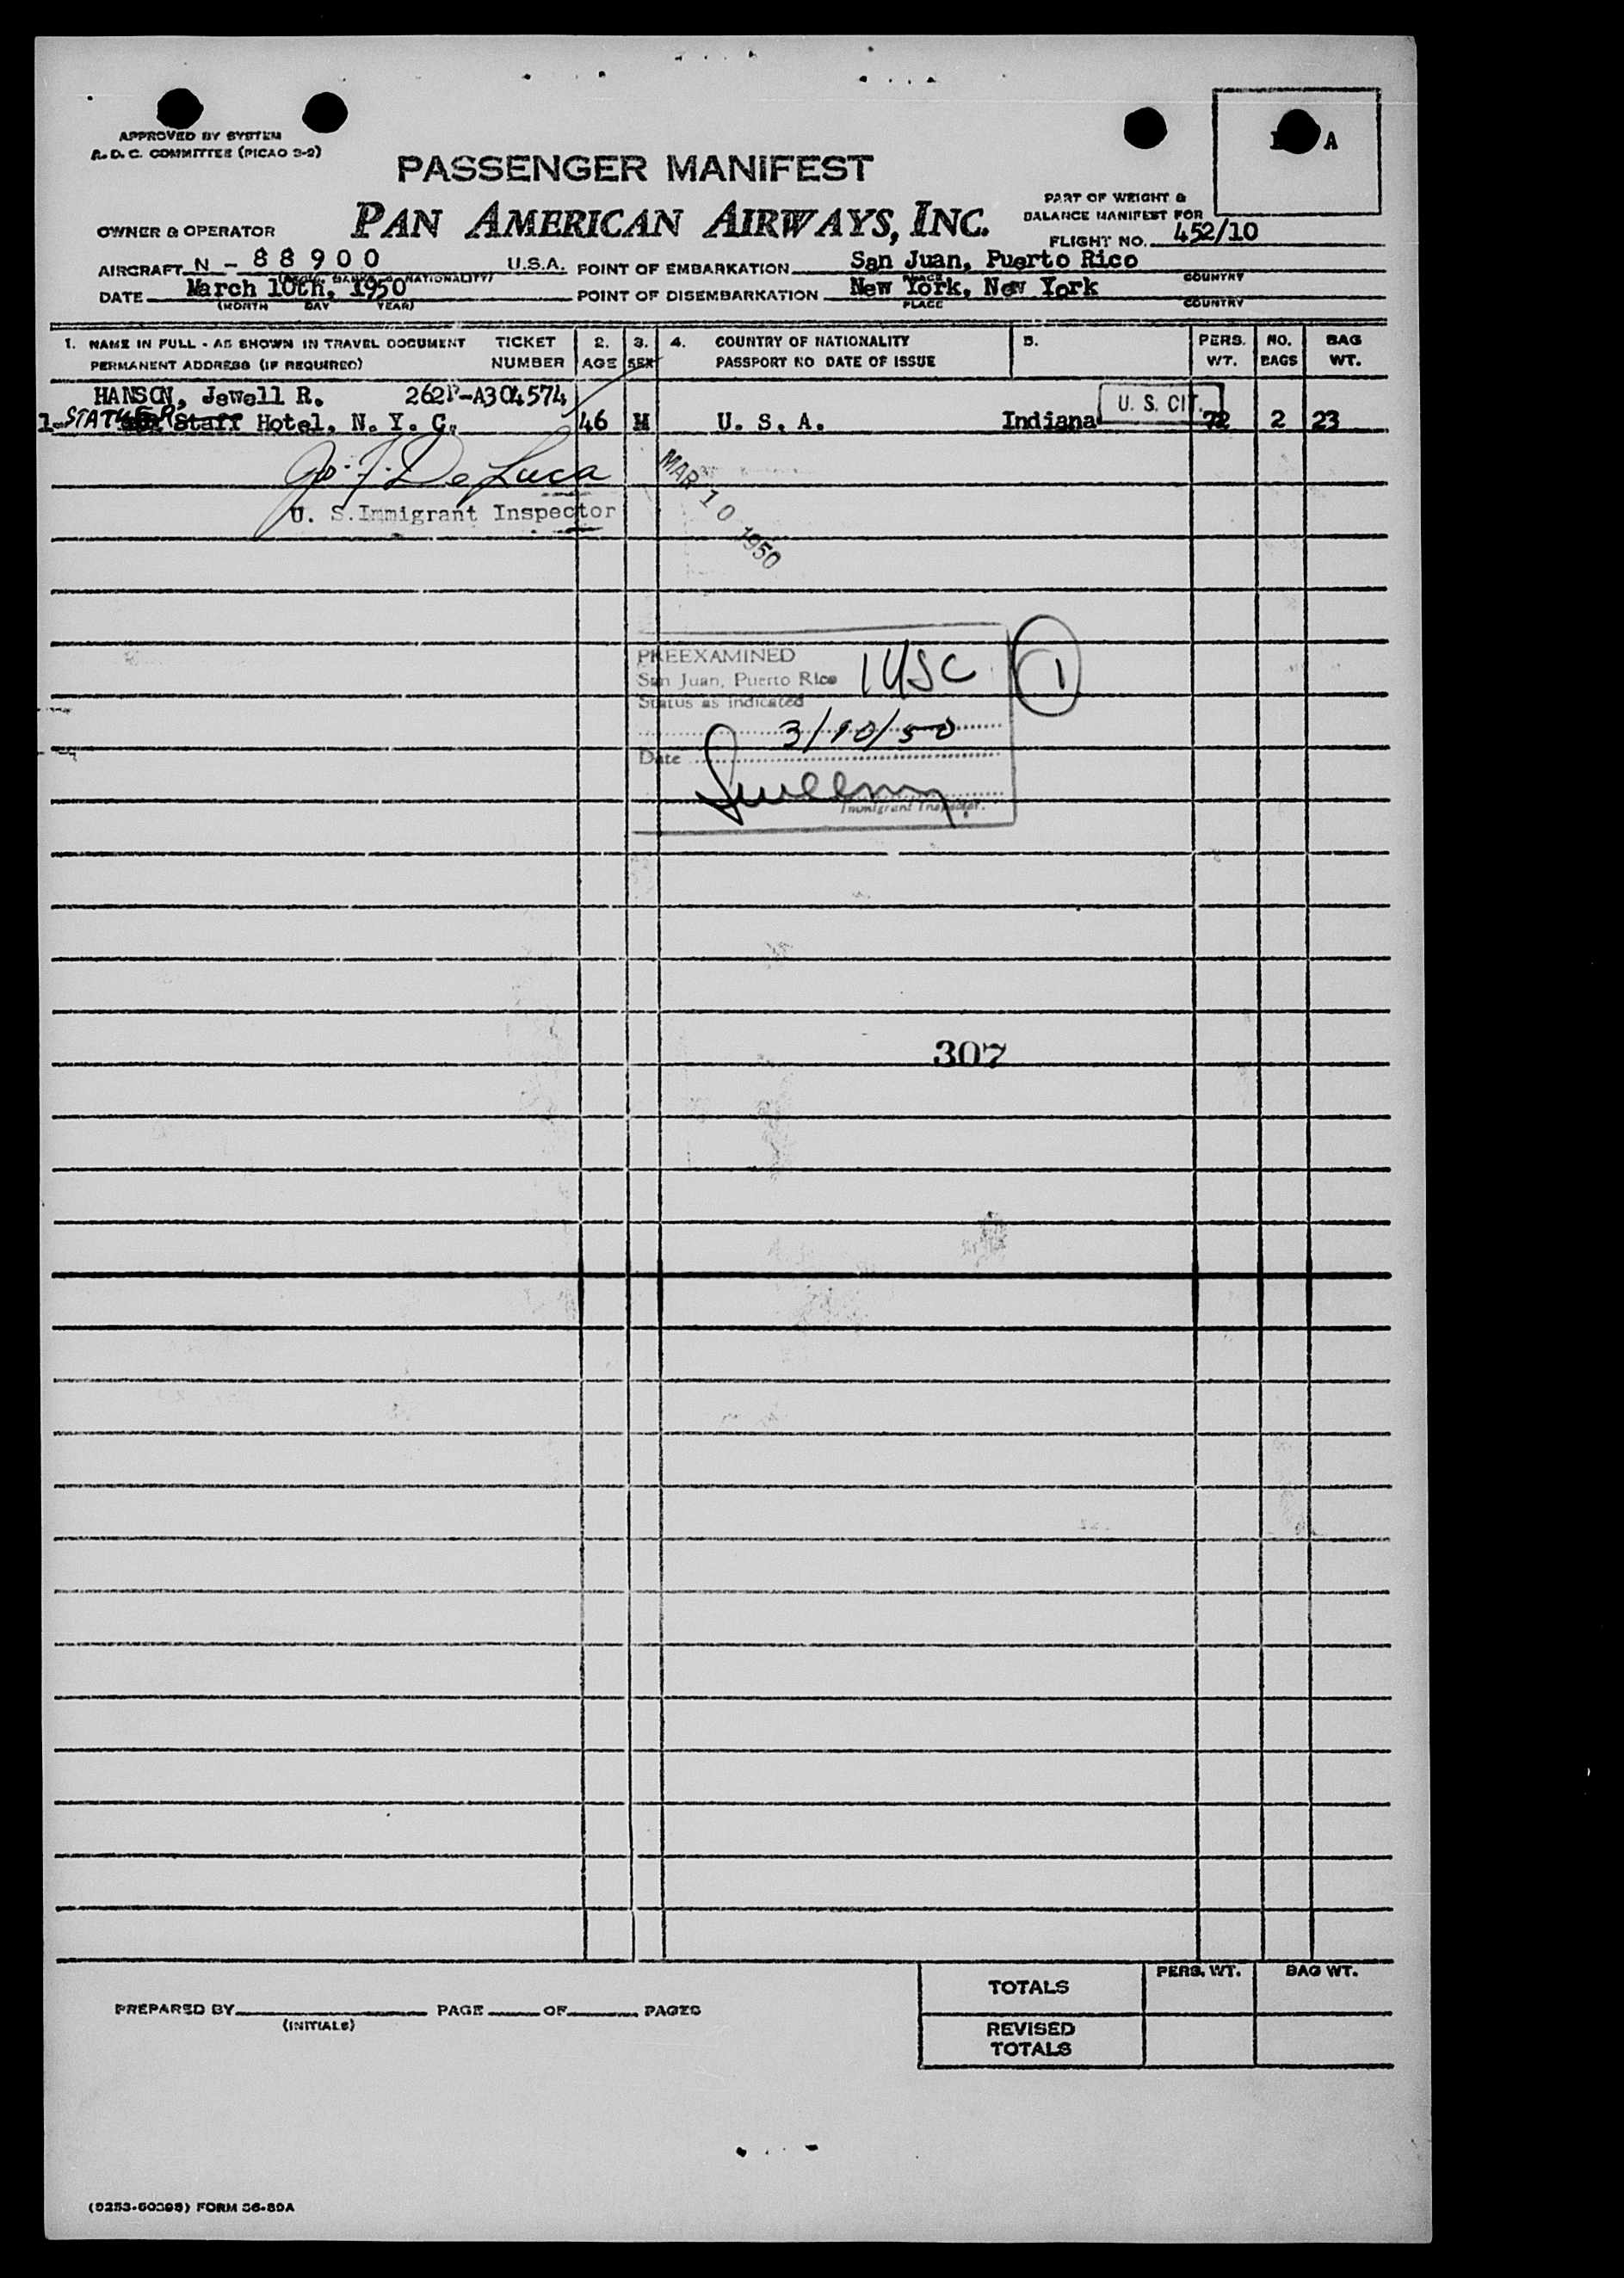 APPROVED BY SYSTEM
R. D. C. COMMITTEE (PICAO 3-2)
A
PASSENGER MANIFEST
PART OF WEIGHT &
BALANCE MANIFEST FOR
OWNER & OPERATOR PAN AMERICAN AIRWAYS, INC.
FLIGHT NO. 452/10
AIRCRAFT N - 88900 U.S.A. POINT OF EMBARKATION San Juan, Puerto Rico
NATIONALITY) PLACE COUNTRY
DATE March 10th, 1950 POINT OF DISEMBARKATION New York, New York
(MONTH DAY YEAR) PLACE COUNTRY
1. NAME IN FULL - AS SHOWN IN TRAVEL DOCUMENT TICKET 2. 3. 4. COUNTRY OF NATIONALITY 5. PERS. NO. BAG
PERMANENT ADDRESS (IF REQUIRED) NUMBER AGE SEX PASSPORT NO DATE OF ISSUE WT. BAGS WT.
HANSON, Jewell R. 262P-A304574
1. STATLER Staff Hotel, N. Y. C. 46 M U. S. A. Indiana U. S. CIT. 72 2 23
Jo. F. De Luca
U. S. Immigrant Inspector
MAR 10 1950
PREEXAMINED
San Juan, Puerto Rico 1 USC 1
Status as indicated
3/10/50
Date
Immigrant Inspector.
307
TOTALS PERS. WT. BAG WT.
PREPARED BY PAGE OF PAGES
(INITIALS)
REVISED
TOTALS
FORM 36-89A